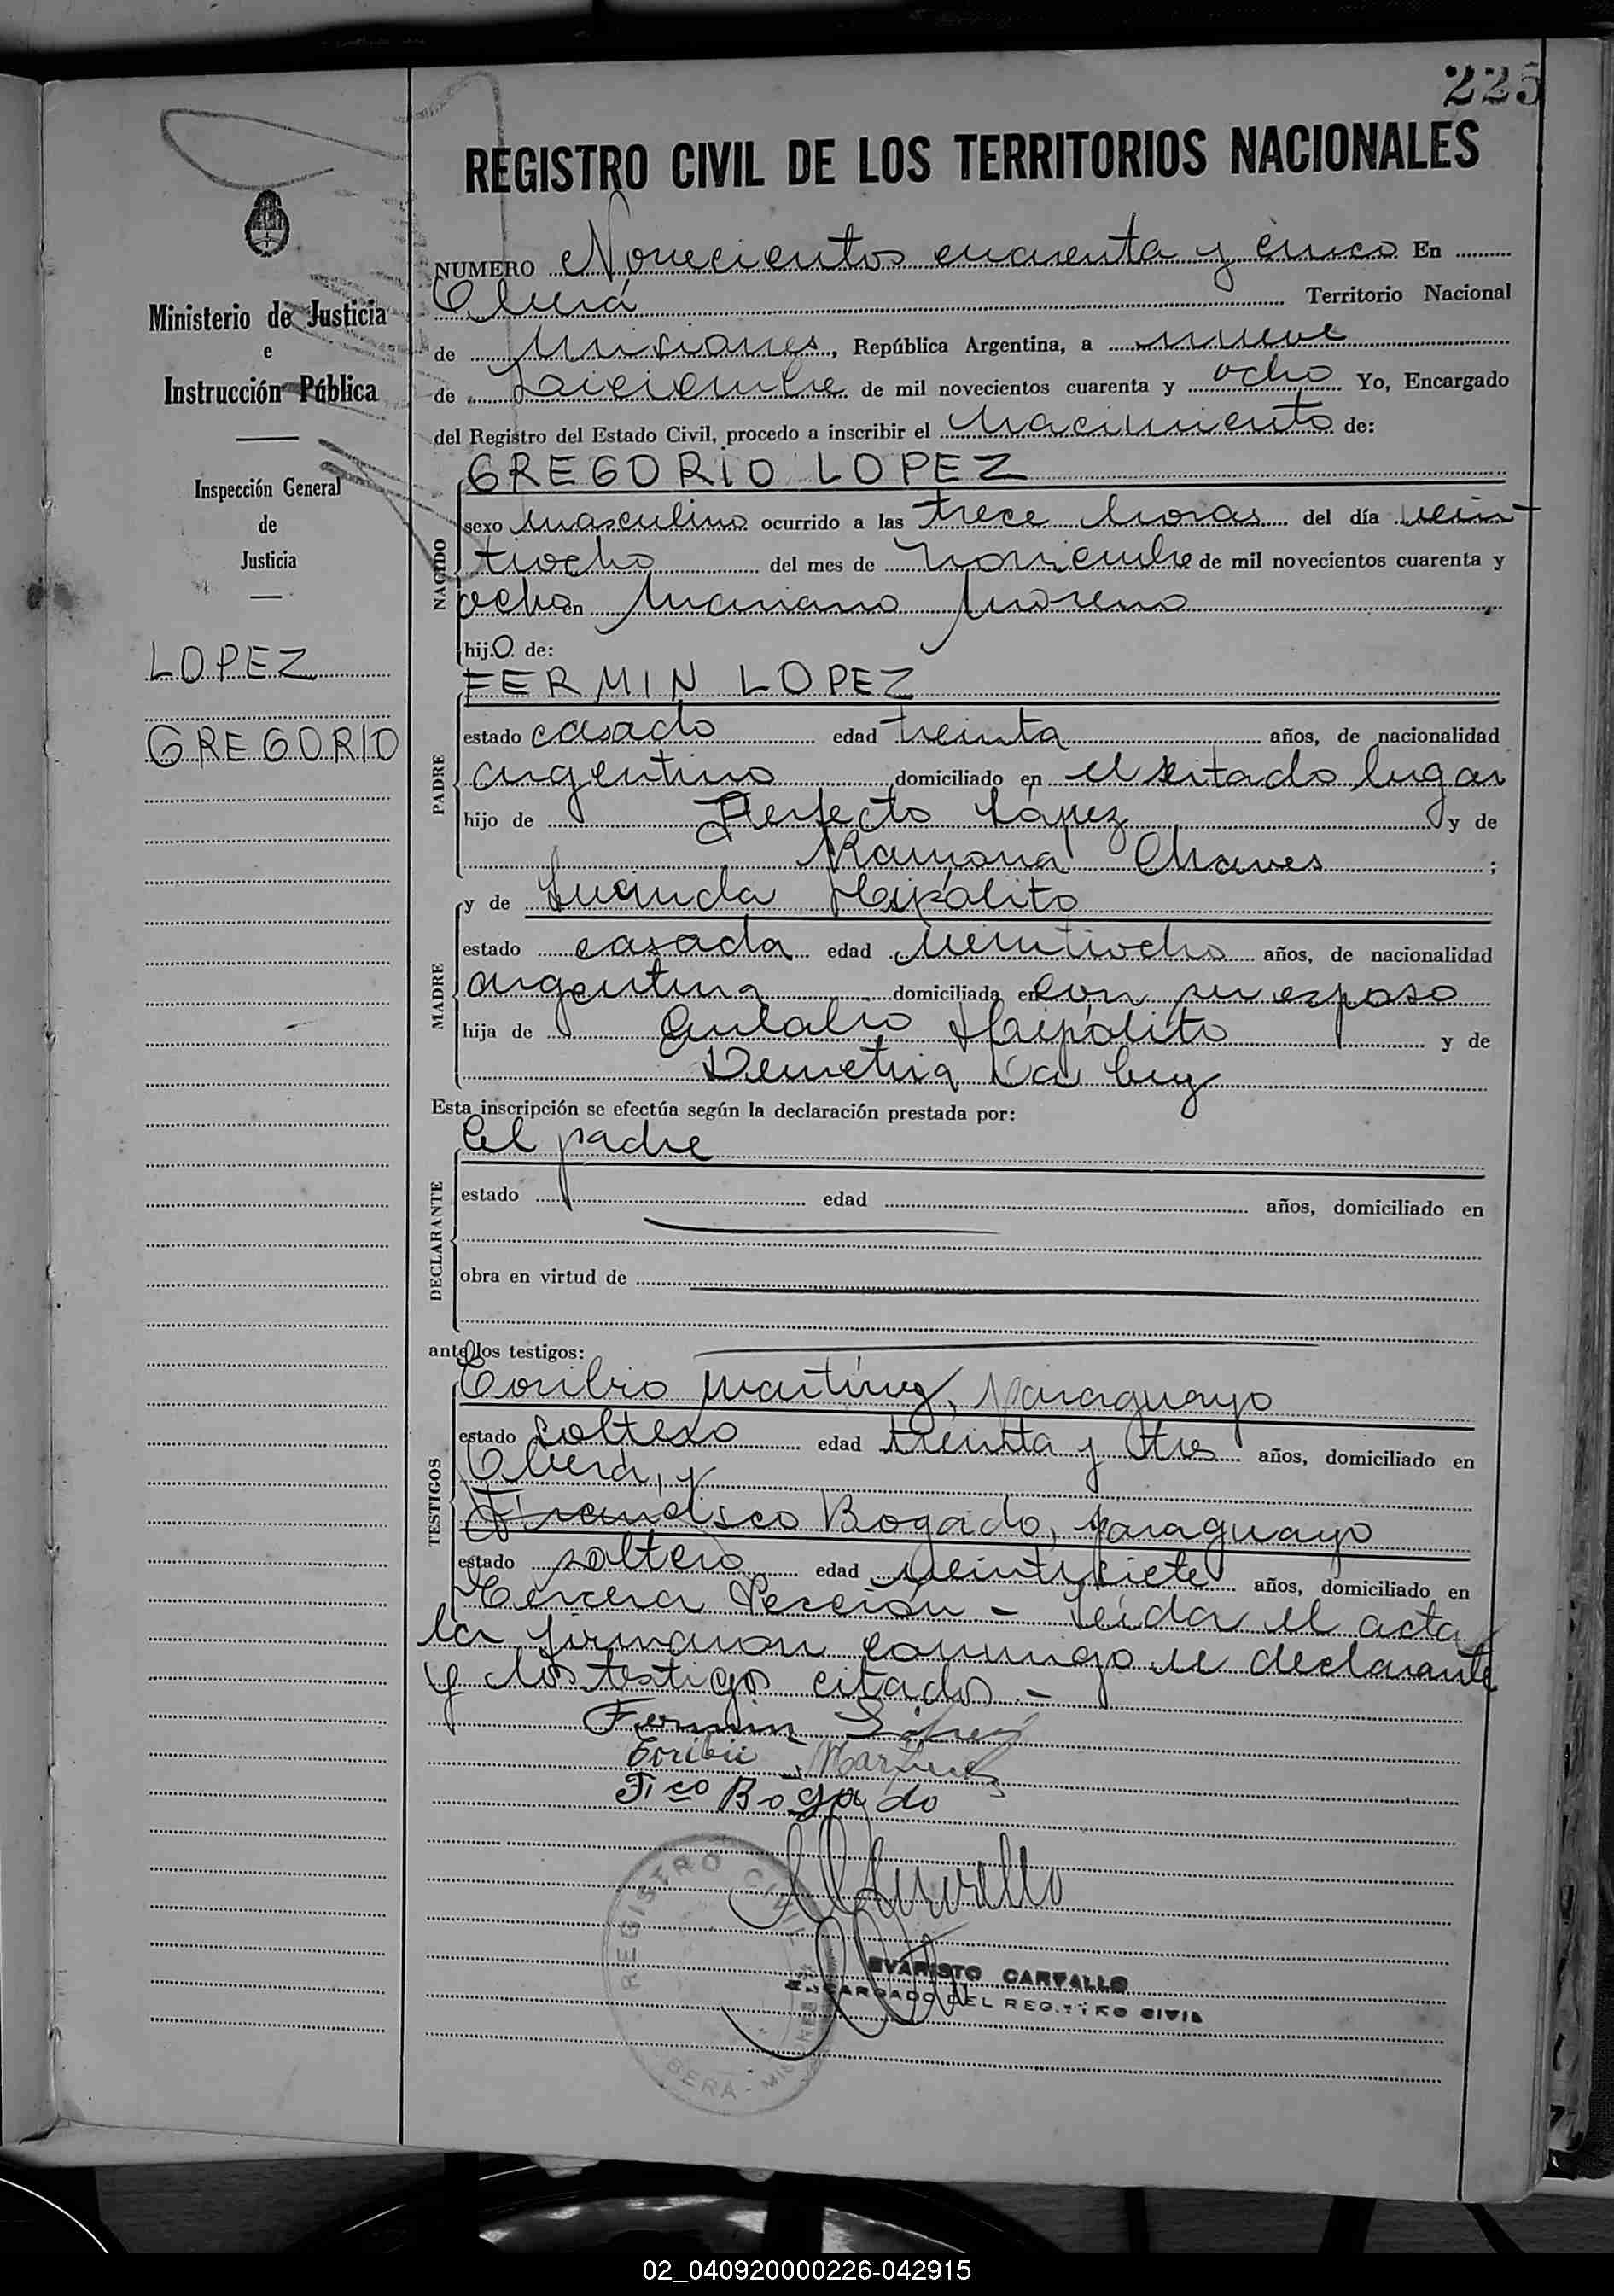 225
REGISTRO CIVIL DE LOS TERRITORIOS NACIONALES
NUMERO Novecientos cuarenta y cinco En
Oberá Territorio Nacional
de Misiones, República Argentina, a nueve
de Diciembre de mil novecientos cuarenta y ocho Yo, Encargado
del Registro del Estado Civil, procedo a inscribir el Nacimiento de:
Ministerio de Justicia
e
Instrucción Pública
Inspección General
de
Justicia
LOPEZ
GREGORIO
NACIDO
GREGORIO LOPEZ
sexo masculino ocurrido a las trece horas del día vein-
tiocho del mes de noviembre de mil novecientos cuarenta y
ocho en Mariano Moreno
hijo de:
PADRE
FERMIN LOPEZ
estado casado edad treinta años, de nacionalidad
argentino domiciliado en el sitado lugar
hijo de Perfecto López y de
Ramona Chaves ;
MADRE
y de Lucinda Hipólito
estado casada edad veintiocho años, de nacionalidad
argentina domiciliada en con su esposo
hija de Eulalio Hipólito y de
Demetria Da Luz
Esta inscripción se efectúa según la declaración prestada por:
DECLARANTE
el padre
estado edad años, domiciliado en
obra en virtud de
ante los testigos:
TESTIGOS
Toribio Martinez, paraguayo
estado soltero edad treinta y tres años, domiciliado en
Oberá, y
Francisco Bogado, paraguayo
estado soltero edad veintisiete años, domiciliado en
Tercera Sección - Leída el acta
la firmaron conmigo el declarante
y los testigos citados -
Fermin López
Toribio Martinez
Fco Bogado
REGISTRO CIVIL
OBERA - MISIONES
EVARISTO CARVALLO
ENCARGADO DEL REGISTRO CIVIL
02_040920000226-042915